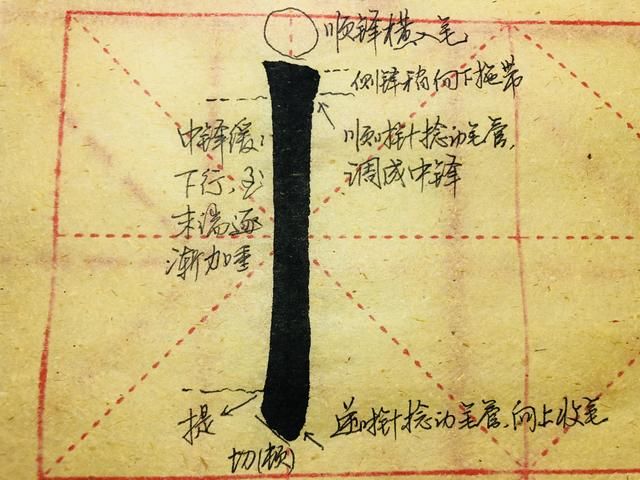 顺锋横入笔
侧锋稍向下拖带
顺时针捻动笔管,
调成中锋
中锋缓缓
下行,至
末端逐
渐加重
提
切(顿)
逆时针捻动笔管,向上收笔